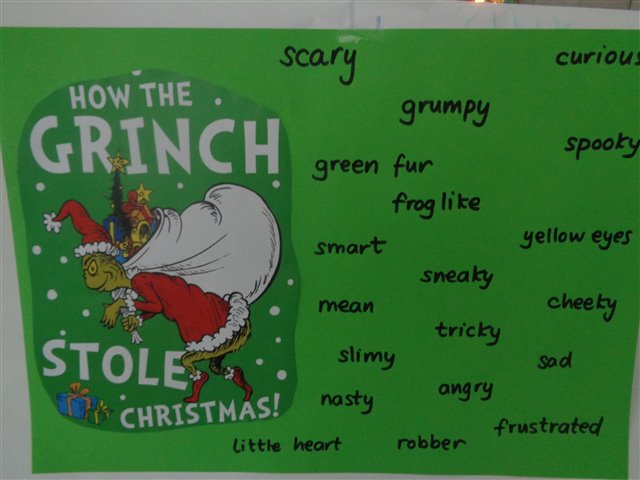 HOW THE
GRINCH
STOLE
CHRISTMAS!
scary
curious
grumpy
spooky
green fur
frog like
smart
yellow eyes
sneaky
mean
cheeky
tricky
slimy
sad
nasty
angry
frustrated
little heart
robber